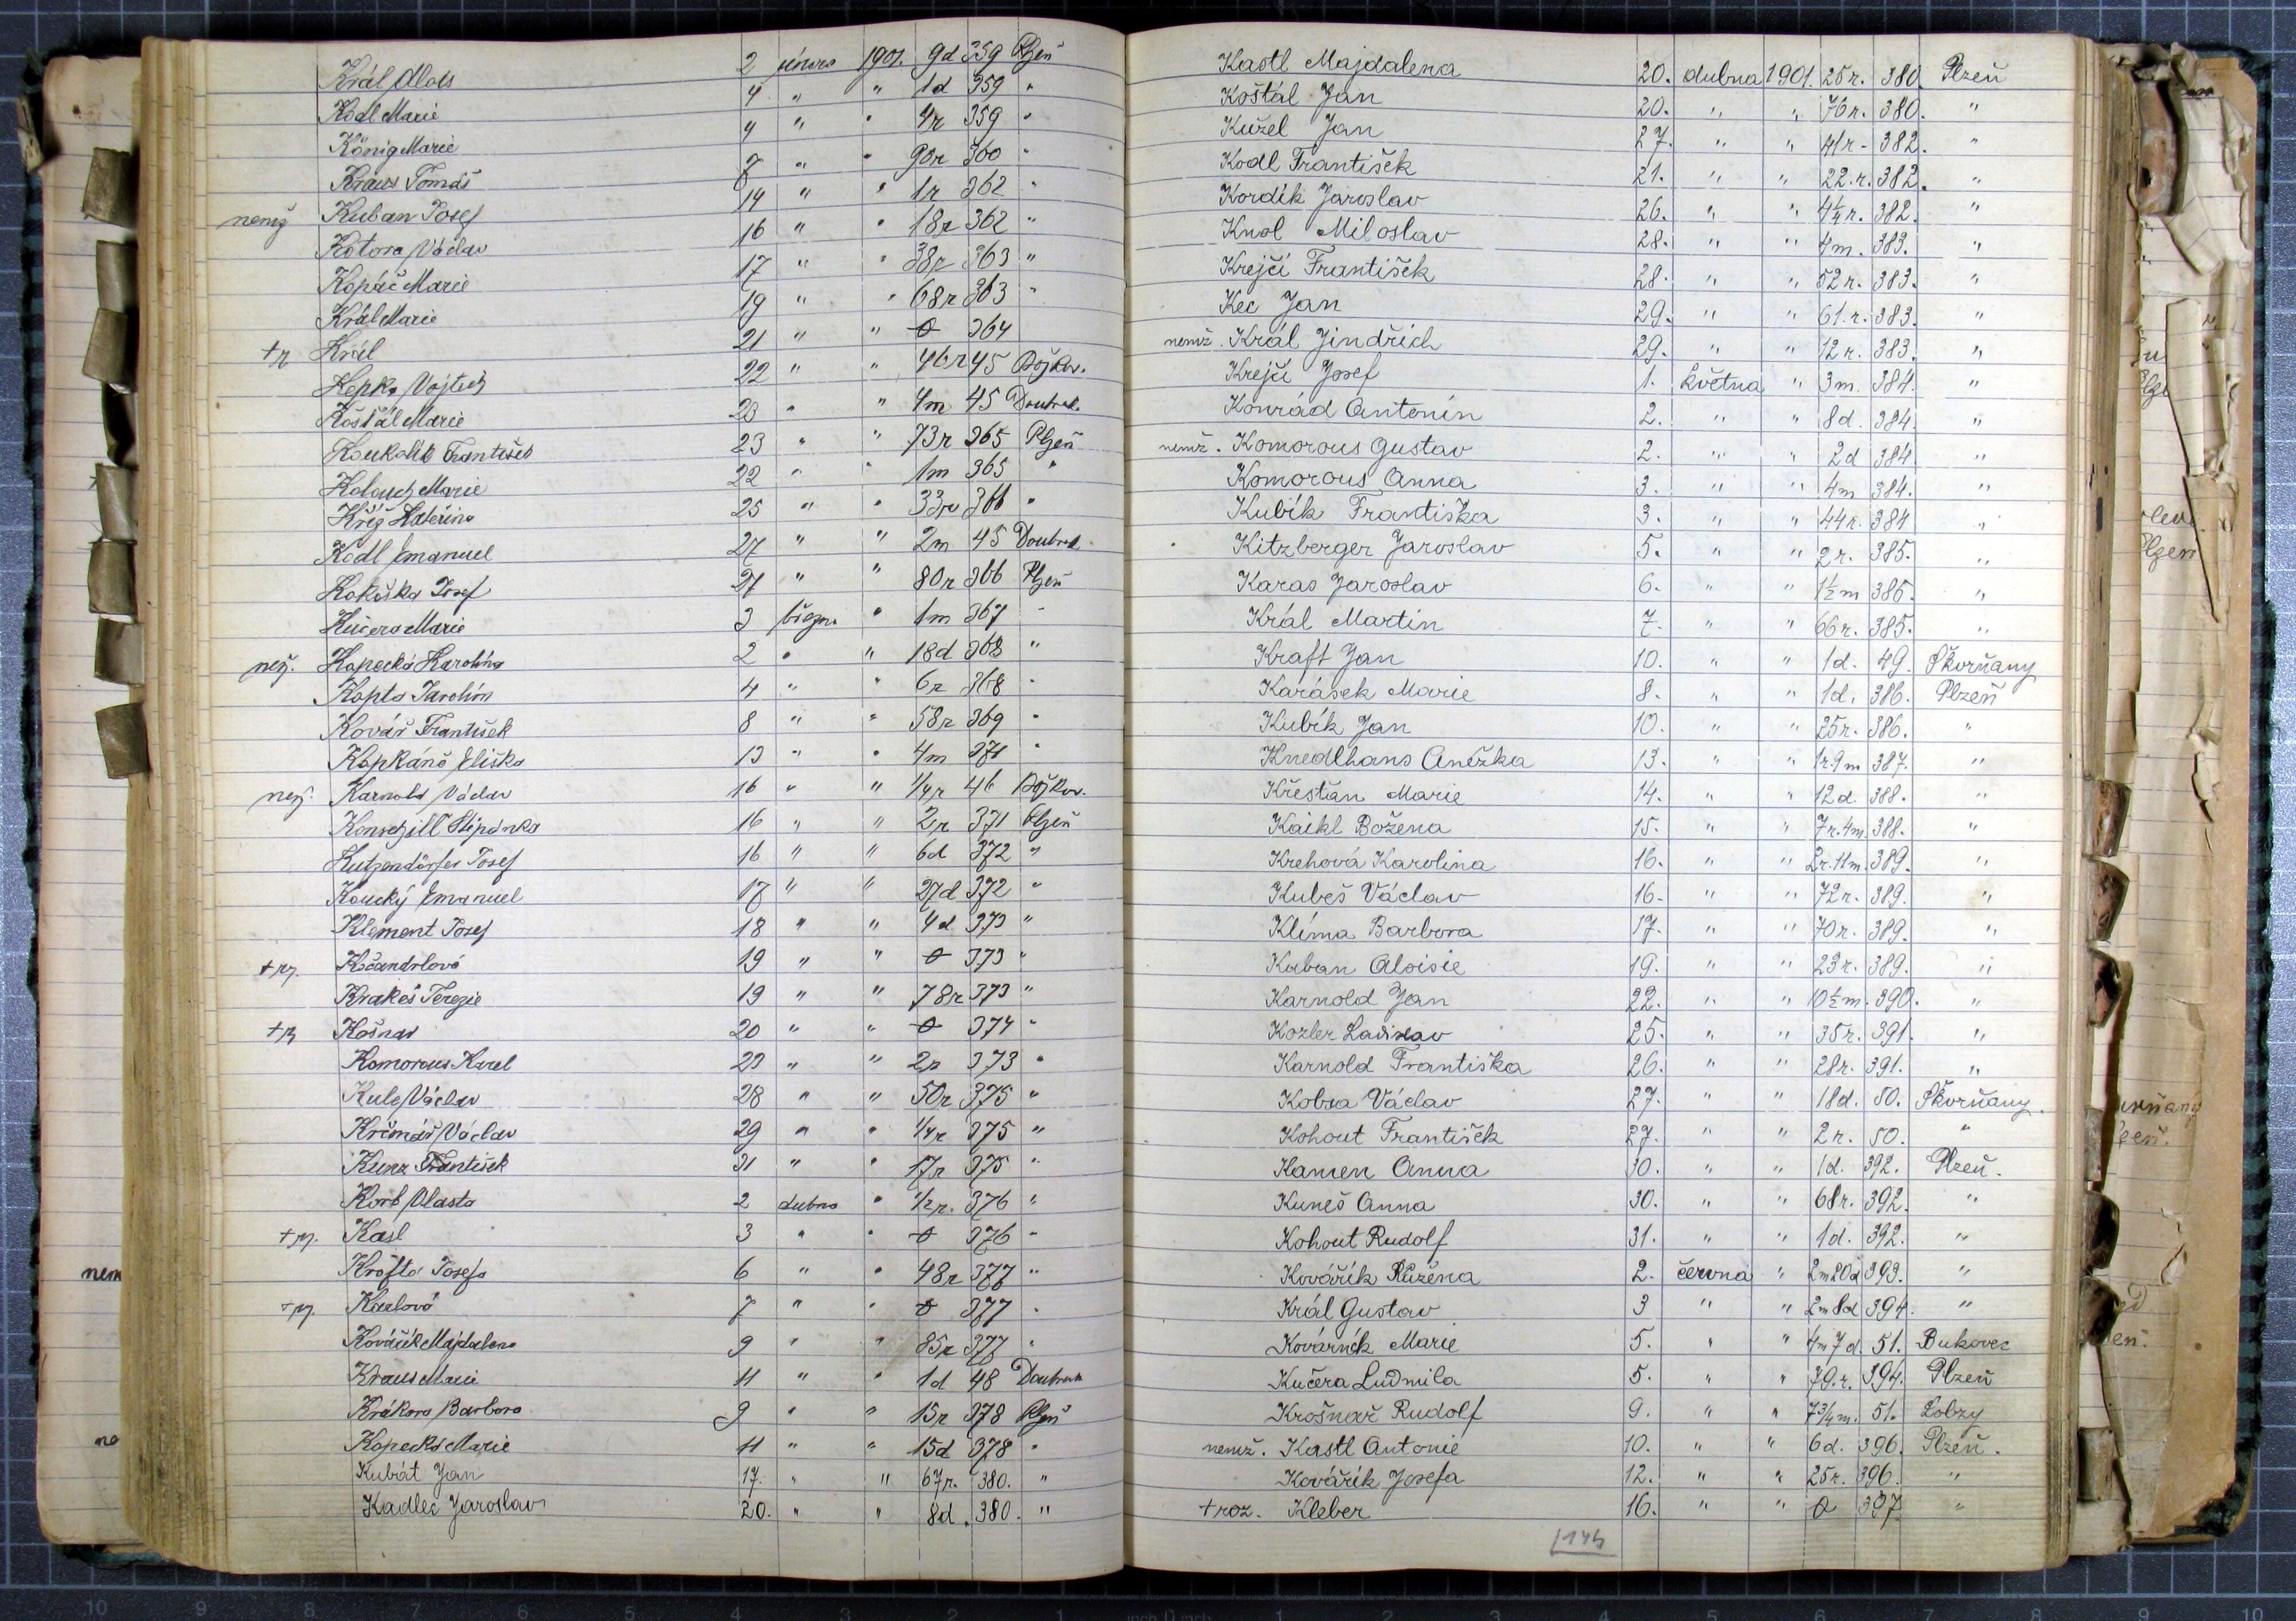 Král Alois 2 února 1901. 9d 359 Plzeň
Kodl Marie 4 " " 1d 359 "
König Marie 4 " " 4r 359 "
Kraus Tomáš 7 " " 90r 360 "
nemž Kuban Josef 14 " " 1r 362 "
Kotora Václav 16 " " 18r 362 "
Kopáč Marie 17 " " 38r 363 "
Král Marie 19 " " 68r 363 "
+r Král 21 " " 0 364
Kepka Vojtěch 22 " " 46r 45 Božkov.
Košťál Marie 23 " " 4m 45 Doubrav.
Koukolík František 23 " " 73r 365 Plzeň
Kolouch Marie 22 " " 1m 365 "
Kříž Kateřina 25 " " 33r 366 "
Kodl Emanuel 27 " " 2m 45 Doubrav.
Kokoška Josef 27 " " 80r 366 Plzeň
Kučera Marie 3 března " 1m 367 "
než. Kopecká Karolína 2 " " 18d 368 "
Kopta Jarolím 4 " " 6r 368 "
Kovář František 8 " " 58r 369 "
Kopkáně Eliška 13 " " 4m 371 "
než. Karnold Václav 16 " " 1/4r 46 Božkov.
Konschill Štěpánka 16 " " 2r 371 Plzeň
Kutzendörfer Josef 16 " " 6d 372 "
Koucký Emanuel 17 " " 27d 372 "
Klement Josef 18 " " 4d 373 "
+rz. Kočandrlová 19 " " 0 373 "
Krakeš Terezie 19 " " 78r 373 "
+rz Košnar 20 " " 0 374 "
Komorous Karel 23 " " 2r 373 "
Kule Václav 28 " " 50r 375 "
Krčmář Václav 29 " " 1/4r 375 "
Kunz František 31 " " 17r 375 "
Korb Vlasta 2 dubna " 1/2r. 376 "
+rz. Kasl 3 " " 0 376 "
Krofta Josefa 6 " " 48r 377 "
+rz. Karlová 7 " " 0 377 "
Kovářík Majdalena 9 " " 85r 377 "
Kraus Marie 11 " " 1d 48 Doubrav
Krákora Barbora 9 " " 15r 378 Plzeň
Kopecká Marie 11 " " 15d 378 "
Kubát Jan 17. " " 67r. 380. "
Kadlec Jaroslav 20. " " 8d. 380. "
Kastl Majdalena 20. dubna 1901. 25r. 380. Plzeň
Košťál Jan 20. " " 76r. 380. "
Kužel Jan 27. " " 41r. 382. "
Kodl František 21. " " 22.r. 382. "
Kordík Jaroslav 26. " " 4 1/4r. 382. "
Knol Miloslav 28. " " 4m. 383. "
Krejčí František 28. " " 52r. 383. "
Kec Jan 29. " " 61.r. 383. "
nemž. Král Jindřich 29. " " 12r. 383. "
Krejčí Josef 1. května " 3m. 384. "
Konrád Antonín 2. " " 8d. 384. "
nemž. Komorous Gustav 2. " " 2d 384 "
Komorous Anna 3. " " 4m 384. "
Kubík Františka 3. " " 44r. 384 "
Kitzberger Jaroslav 5. " " 2r. 385. "
Karas Jaroslav 6. " " 1 1/2m 386. "
Král Martin 7. " " 66r. 385. "
Kraft Jan 10. " " 1d. 49. Škorňany
Karásek Marie 8. " " 1d. 386. Plzeň
Kubík Jan 10. " " 25r. 386. "
Knedlhans Anežka 13. " " 1r.9m 387. "
Křesťan Marie 14. " " 12d. 388. "
Kaikl Božena 15. " " 7r.4m. 388. "
Krehová Karolina 16. " " 2r.11m. 389. "
Kubeš Václav 16. " " 72r. 389. "
Klíma Barbora 17. " " 70r. 389. "
Kuban Aloisie 19. " " 23r. 389. "
Karnold Jan 22. " " 10 1/2m. 390. "
Kozler Ladislav 25. " " 35r. 391. "
Karnold Františka 26. " " 28r. 391. "
Kobra Václav 27. " " 18d. 50. Škorňany.
Kohout František 27. " " 2r. 50. "
Kamen Anna 30. " " 1d. 392. Plzeň.
Kuneš Anna 30. " " 68r. 392. "
Kohout Rudolf 31. " " 1d. 392. "
Kovářík Růžena 2. června " 2m20d 393. "
Král Gustav 3 " " 2m8d 394. "
Kovárník Marie 5. " " 4m7d. 51. Bukovec
Kučera Ludmila 5. " " 79.r. 394. Plzeň
Krošnař Rudolf 9. " " 7 3/4m. 51. Lobzy
nemž. Kastl Antonie 10. " " 6d. 396. Plzeň.
Kovářík Josefa 12. " " 25r. 396. "
+roz. Kleber 16. " " 0 397 "
144